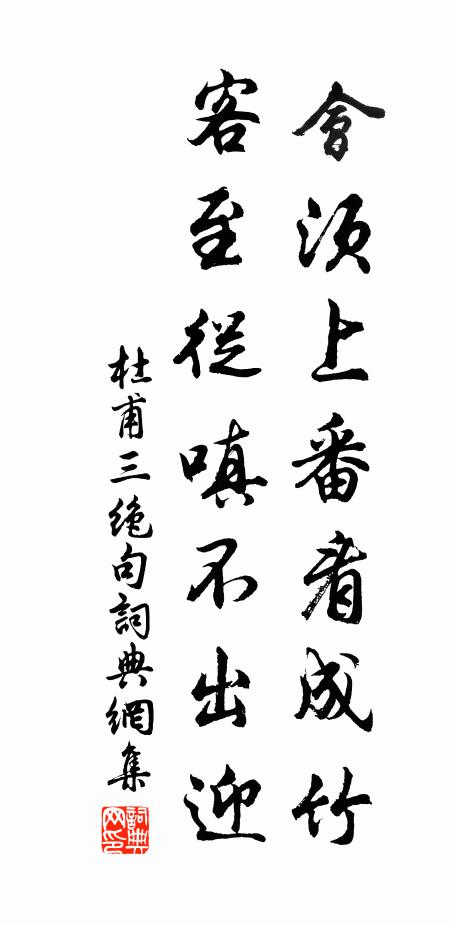 會須上番看成竹
客至從嗔不出迎
杜甫三绝句詞典網集
詞典网印